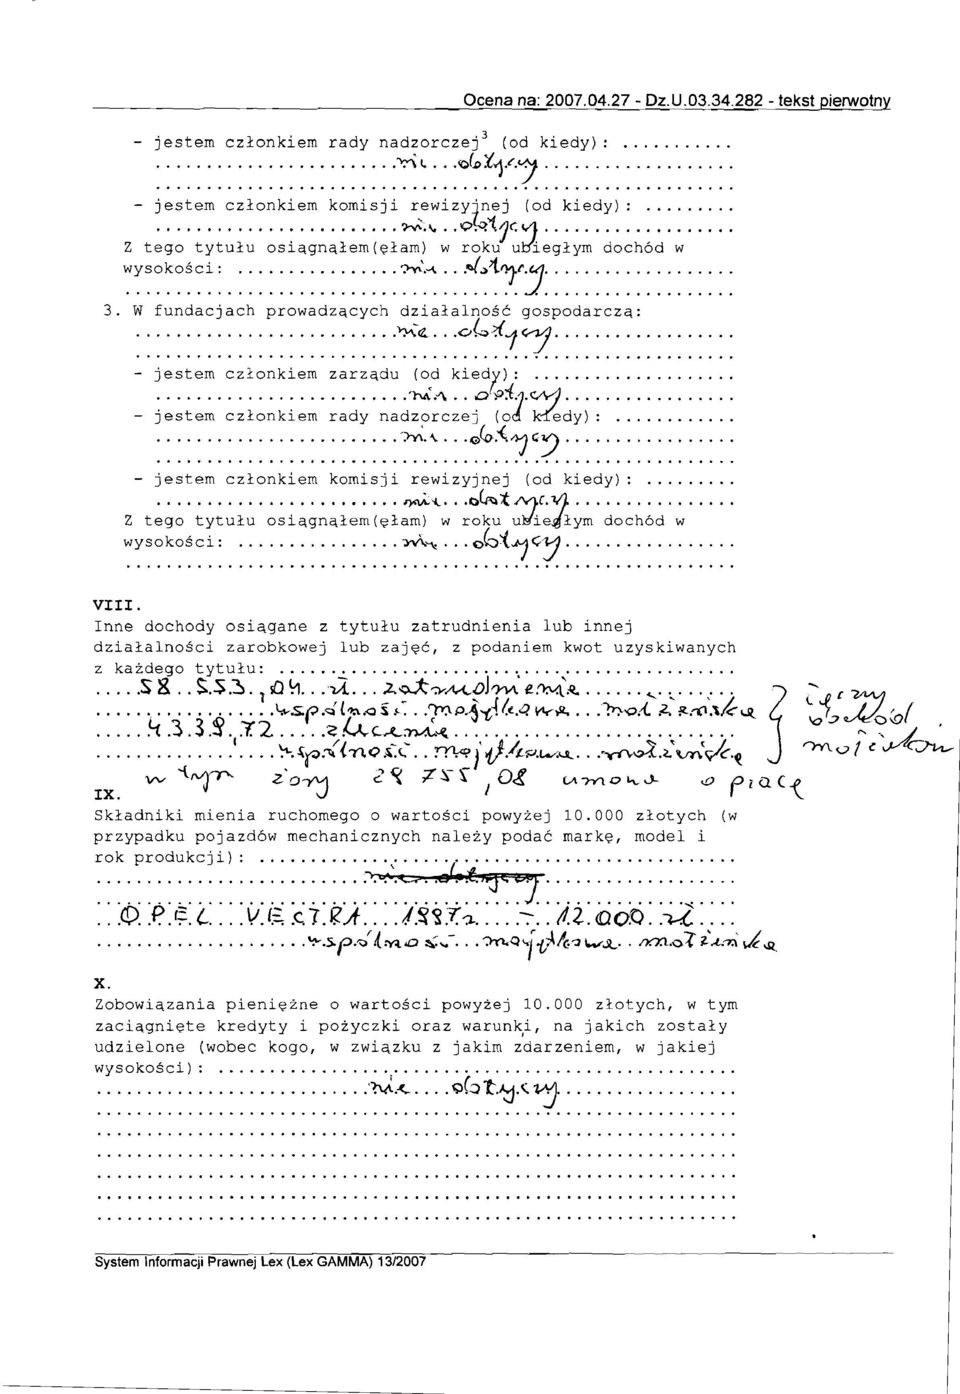 Ocena na: 2007.04.27 - Dz.U.03.34.282 - tekst pierwotny
- jestem członkiem rady nadzorczej3 (od kiedy): ...........
nie dotyczy
- jestem członkiem komisji rewizyjnej (od kiedy): .........
nie dotyczy
Z tego tytułu osiągnąłem(ęłam) w roku ubiegłym dochód w
wysokości: ................nie dotyczy
3. W fundacjach prowadzących działalność gospodarczą:
nie dotyczy
- jestem członkiem zarządu (od kiedy): ....................
nie dotyczy
- jestem członkiem rady nadzorczej (od kiedy): ............
nie dotyczy
- jestem członkiem komisji rewizyjnej (od kiedy): .........
nie dotyczy
Z tego tytułu osiągnąłem(ęłam) w roku ubiegłym dochód w
wysokości: ................nie dotyczy
VIII.
Inne dochody osiągane z tytułu zatrudnienia lub innej
działalności zarobkowej lub zajęć, z podaniem kwot uzyskiwanych
z każdego tytułu: .............................................
58.553,04 zł zatrudnienie
współność majątkowa małżeńska
4.338,72 zlecenie
współność majątkowa małżeńska
łączny
dochód
małżonków
w tym żony 29 755,08 umowa o pracę
IX.
Składniki mienia ruchomego o wartości powyżej 10.000 złotych (w
przypadku pojazdów mechanicznych należy podać markę, model i
rok produkcji): ...............................................
nie dotyczy
OPEL VECTRA 1997r. - 12.000 zł
współność majątkowa małżeńska
X.
Zobowiązania pieniężne o wartości powyżej 10.000 złotych, w tym
zaciągnięte kredyty i pożyczki oraz warunki, na jakich zostały
udzielone (wobec kogo, w związku z jakim zdarzeniem, w jakiej
wysokości): ...................................................
nie dotyczy
System Informacji Prawnej Lex (Lex GAMMA) 13/2007